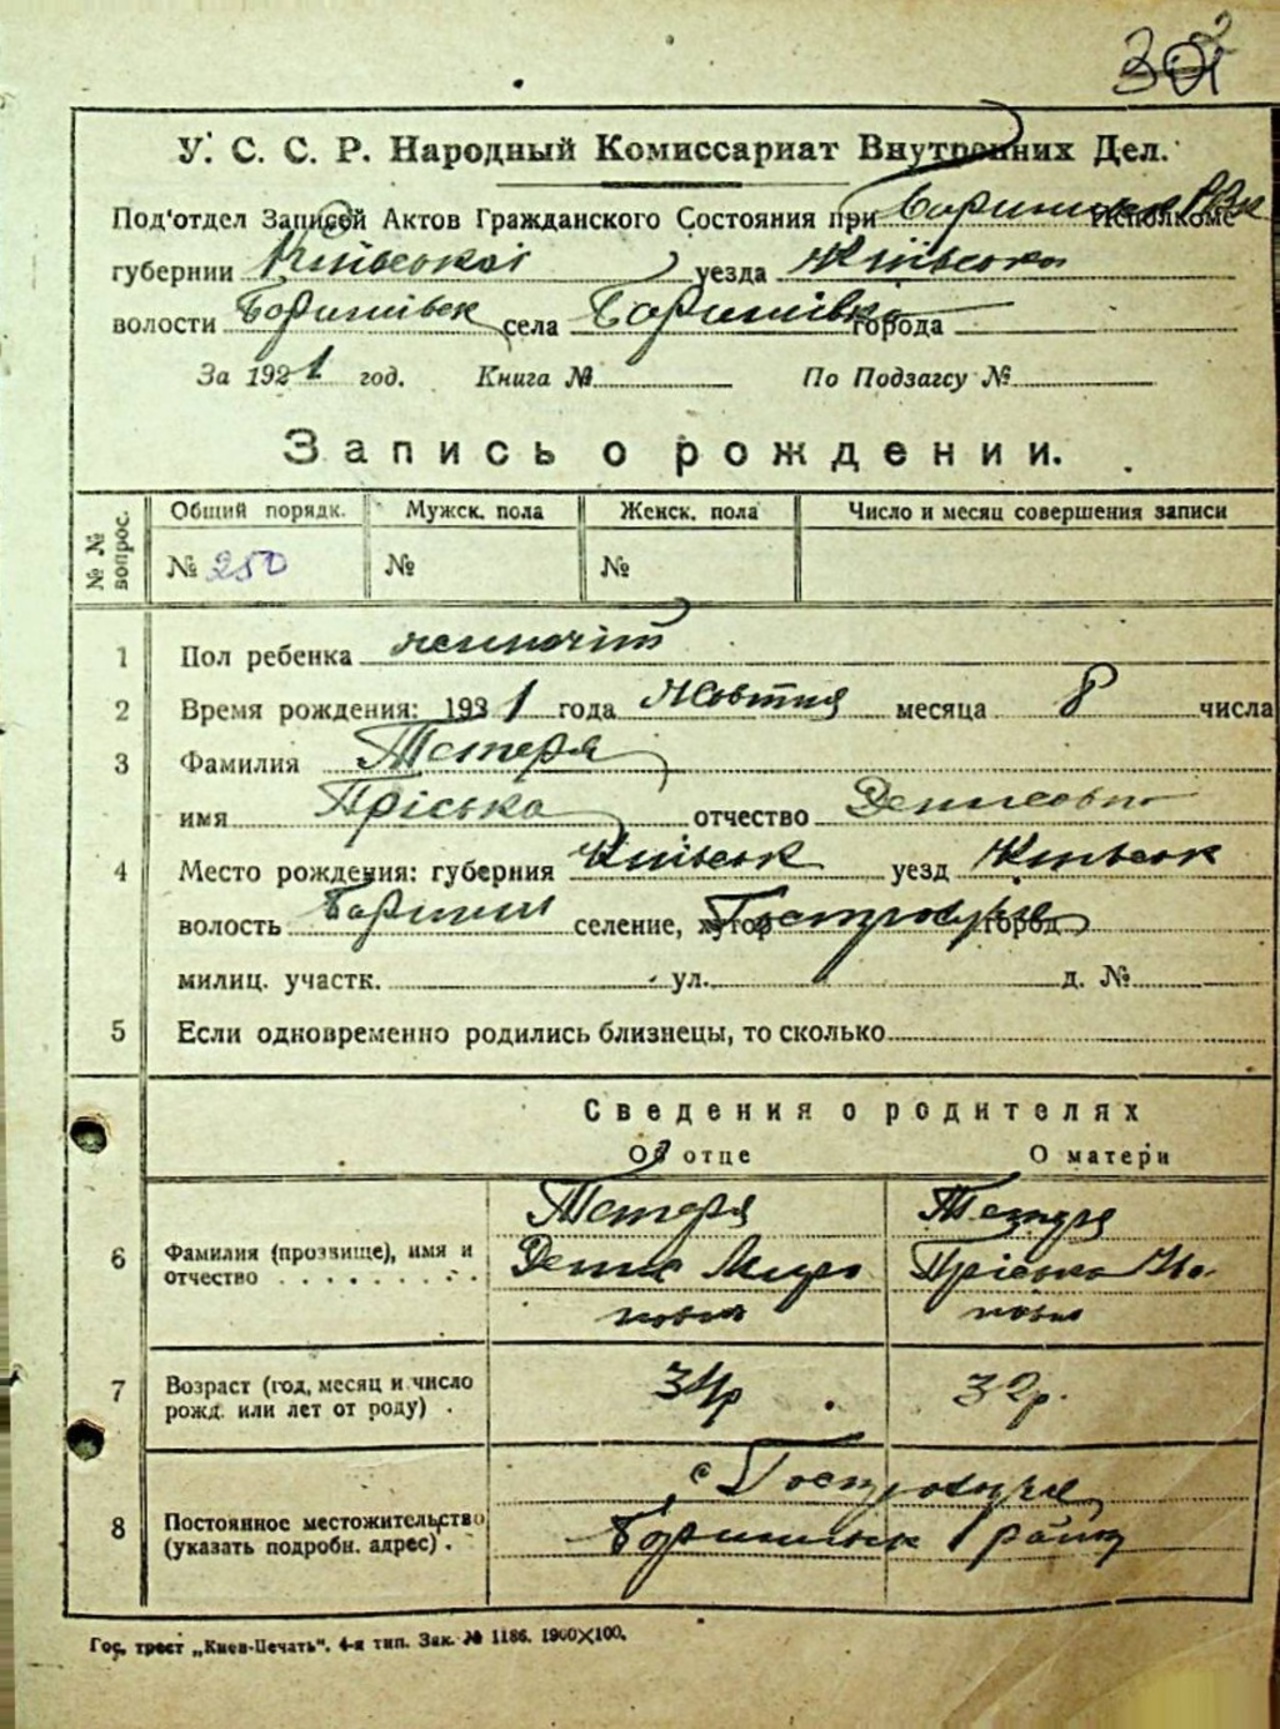 302
У. С. С. Р. Народный Комиссариат Внутренних Дел.
Под'отдел Записей Актов Гражданского Состояния при Баришівськ РВК Исполкоме
губернии Київської уезда Київська
волости Баришівськ села Баришівка города
За 1921 год. Книга № По Подзагсу №
Запись о рождении.
№ № вопрос. Общий порядк. Мужск. пола Женск. пола Число и месяц совершения записи
№ 250 № №
1 Пол ребенка жиночій
2 Время рождения: 1921 года Жовтня месяца 8 числа
3 Фамилия Тетеря
имя Пріська отчество Денисовна
4 Место рождения: губерния Київськ уезд Київськ
волость Баришів селение, хутор Гостролуччя город
милиц. участк. ул. д. №
5 Если одновременно родились близнецы, то сколько
Сведения о родителях
Об отце О матери
6 Фамилия (прозвище), имя и отчество Тетеря Тетеря
Денис Миро Пріська
нович
7 Возраст (год, месяц и число рожд. или лет от роду) 34р 32р.
8 Постоянное местожительство (указать подробн. адрес) с Гостролуччя
Баришівськ району
Гос. трест „Киев-Печать". 4-я тип. Зак. № 1186. 1900×100.